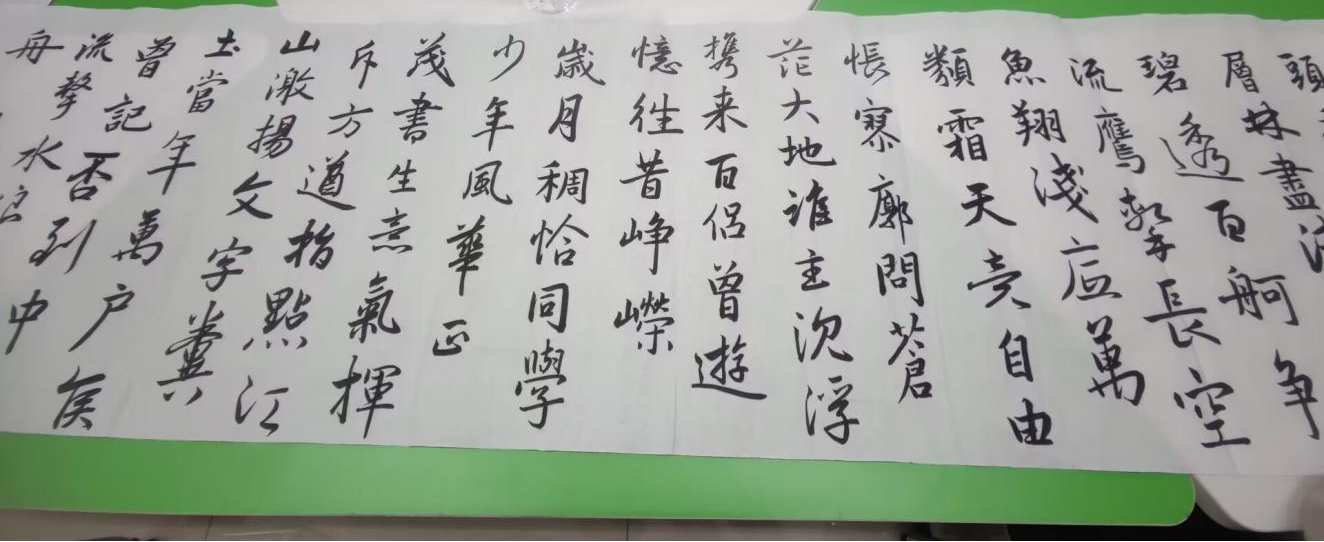 頭
層林盡
碧透百舸争
流鷹擊長空
魚翔淺底萬
類霜天竞自由
悵寥廓問蒼
茫大地誰主沉浮
携来百侣曾遊
憶往昔崢嶸
歲月稠恰同學
少年風華正
茂書生意氣揮
斥方遒指點江
山激揚文字糞
土當年萬户侯
曾記否到中
流擊水浪
舟